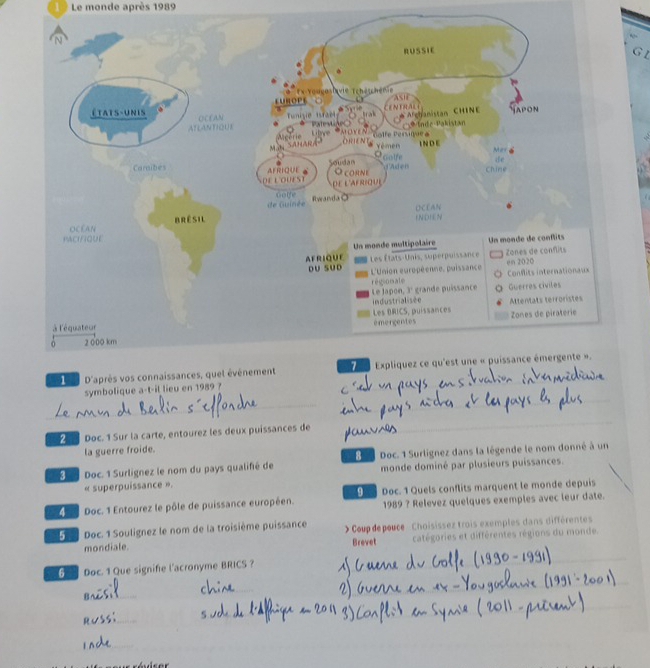 1 Le monde après 1989
N
RUSSIE
ÉTATS-UNIS
OCÉAN
ATLANTIQUE
EUROPE
Ex-Yougoslavie Tchétchénie
ASIE
CENTRALE
Tunisie Israël
Syrie
Irak
Afghanistan
CHINE
JAPON
Palestine
Inde-Pakistan
Algérie
Libye
MOYEN-
ORIENT
Golfe Persique
Mali
SAHARA
Yémen
INDE
Mer
de
Chine
Caraïbes
Soudan
Golfe
d'Aden
AFRIQUE
DE L'OUEST
CORNE
DE L'AFRIQUE
Golfe
de Guinée
Rwanda
BRÉSIL
OCÉAN
INDIEN
OCÉAN
PACIFIQUE
AFRIQUE
DU SUD
à l'équateur
0 2 000 km
Un monde multipolaire
Les États-Unis, superpuissance
L'Union européenne, puissance
régionale
Le Japon, 3e grande puissance
industrialisée
Les BRICS, puissances
émergentes
Un monde de conflits
Zones de conflits
en 2020
Conflits internationaux
Guerres civiles
Attentats terroristes
Zones de piraterie
1 D'après vos connaissances, quel événement
symbolique a-t-il lieu en 1989 ?
Le mur de Berlin s'effondre
2 Doc. 1 Sur la carte, entourez les deux puissances de
la guerre froide.
3 Doc. 1 Surlignez le nom du pays qualifié de
« superpuissance ».
4 Doc. 1 Entourez le pôle de puissance européen.
5 Doc. 1 Soulignez le nom de la troisième puissance
mondiale.
6 Doc. 1 Que signifie l'acronyme BRICS ?
Brésil chine
Russi sude de l'Affrique en 2011
Inde
7 Expliquez ce qu'est une « puissance émergente ».
c'est un pays en situation intermédiaire
entre pays riches et les pays les plus
pauvres
8 Doc. 1 Surlignez dans la légende le nom donné à un
monde dominé par plusieurs puissances.
9 Doc. 1 Quels conflits marquent le monde depuis
1989 ? Relevez quelques exemples avec leur date.
> Coup de pouce Choisissez trois exemples dans différentes
Brevet catégories et différentes régions du monde.
1) Guerre du Golfe (1990-1991)
2) Guerre en ex-Yougoslavie (1991-2001)
3) Conflit en Syrie (2011-présent)